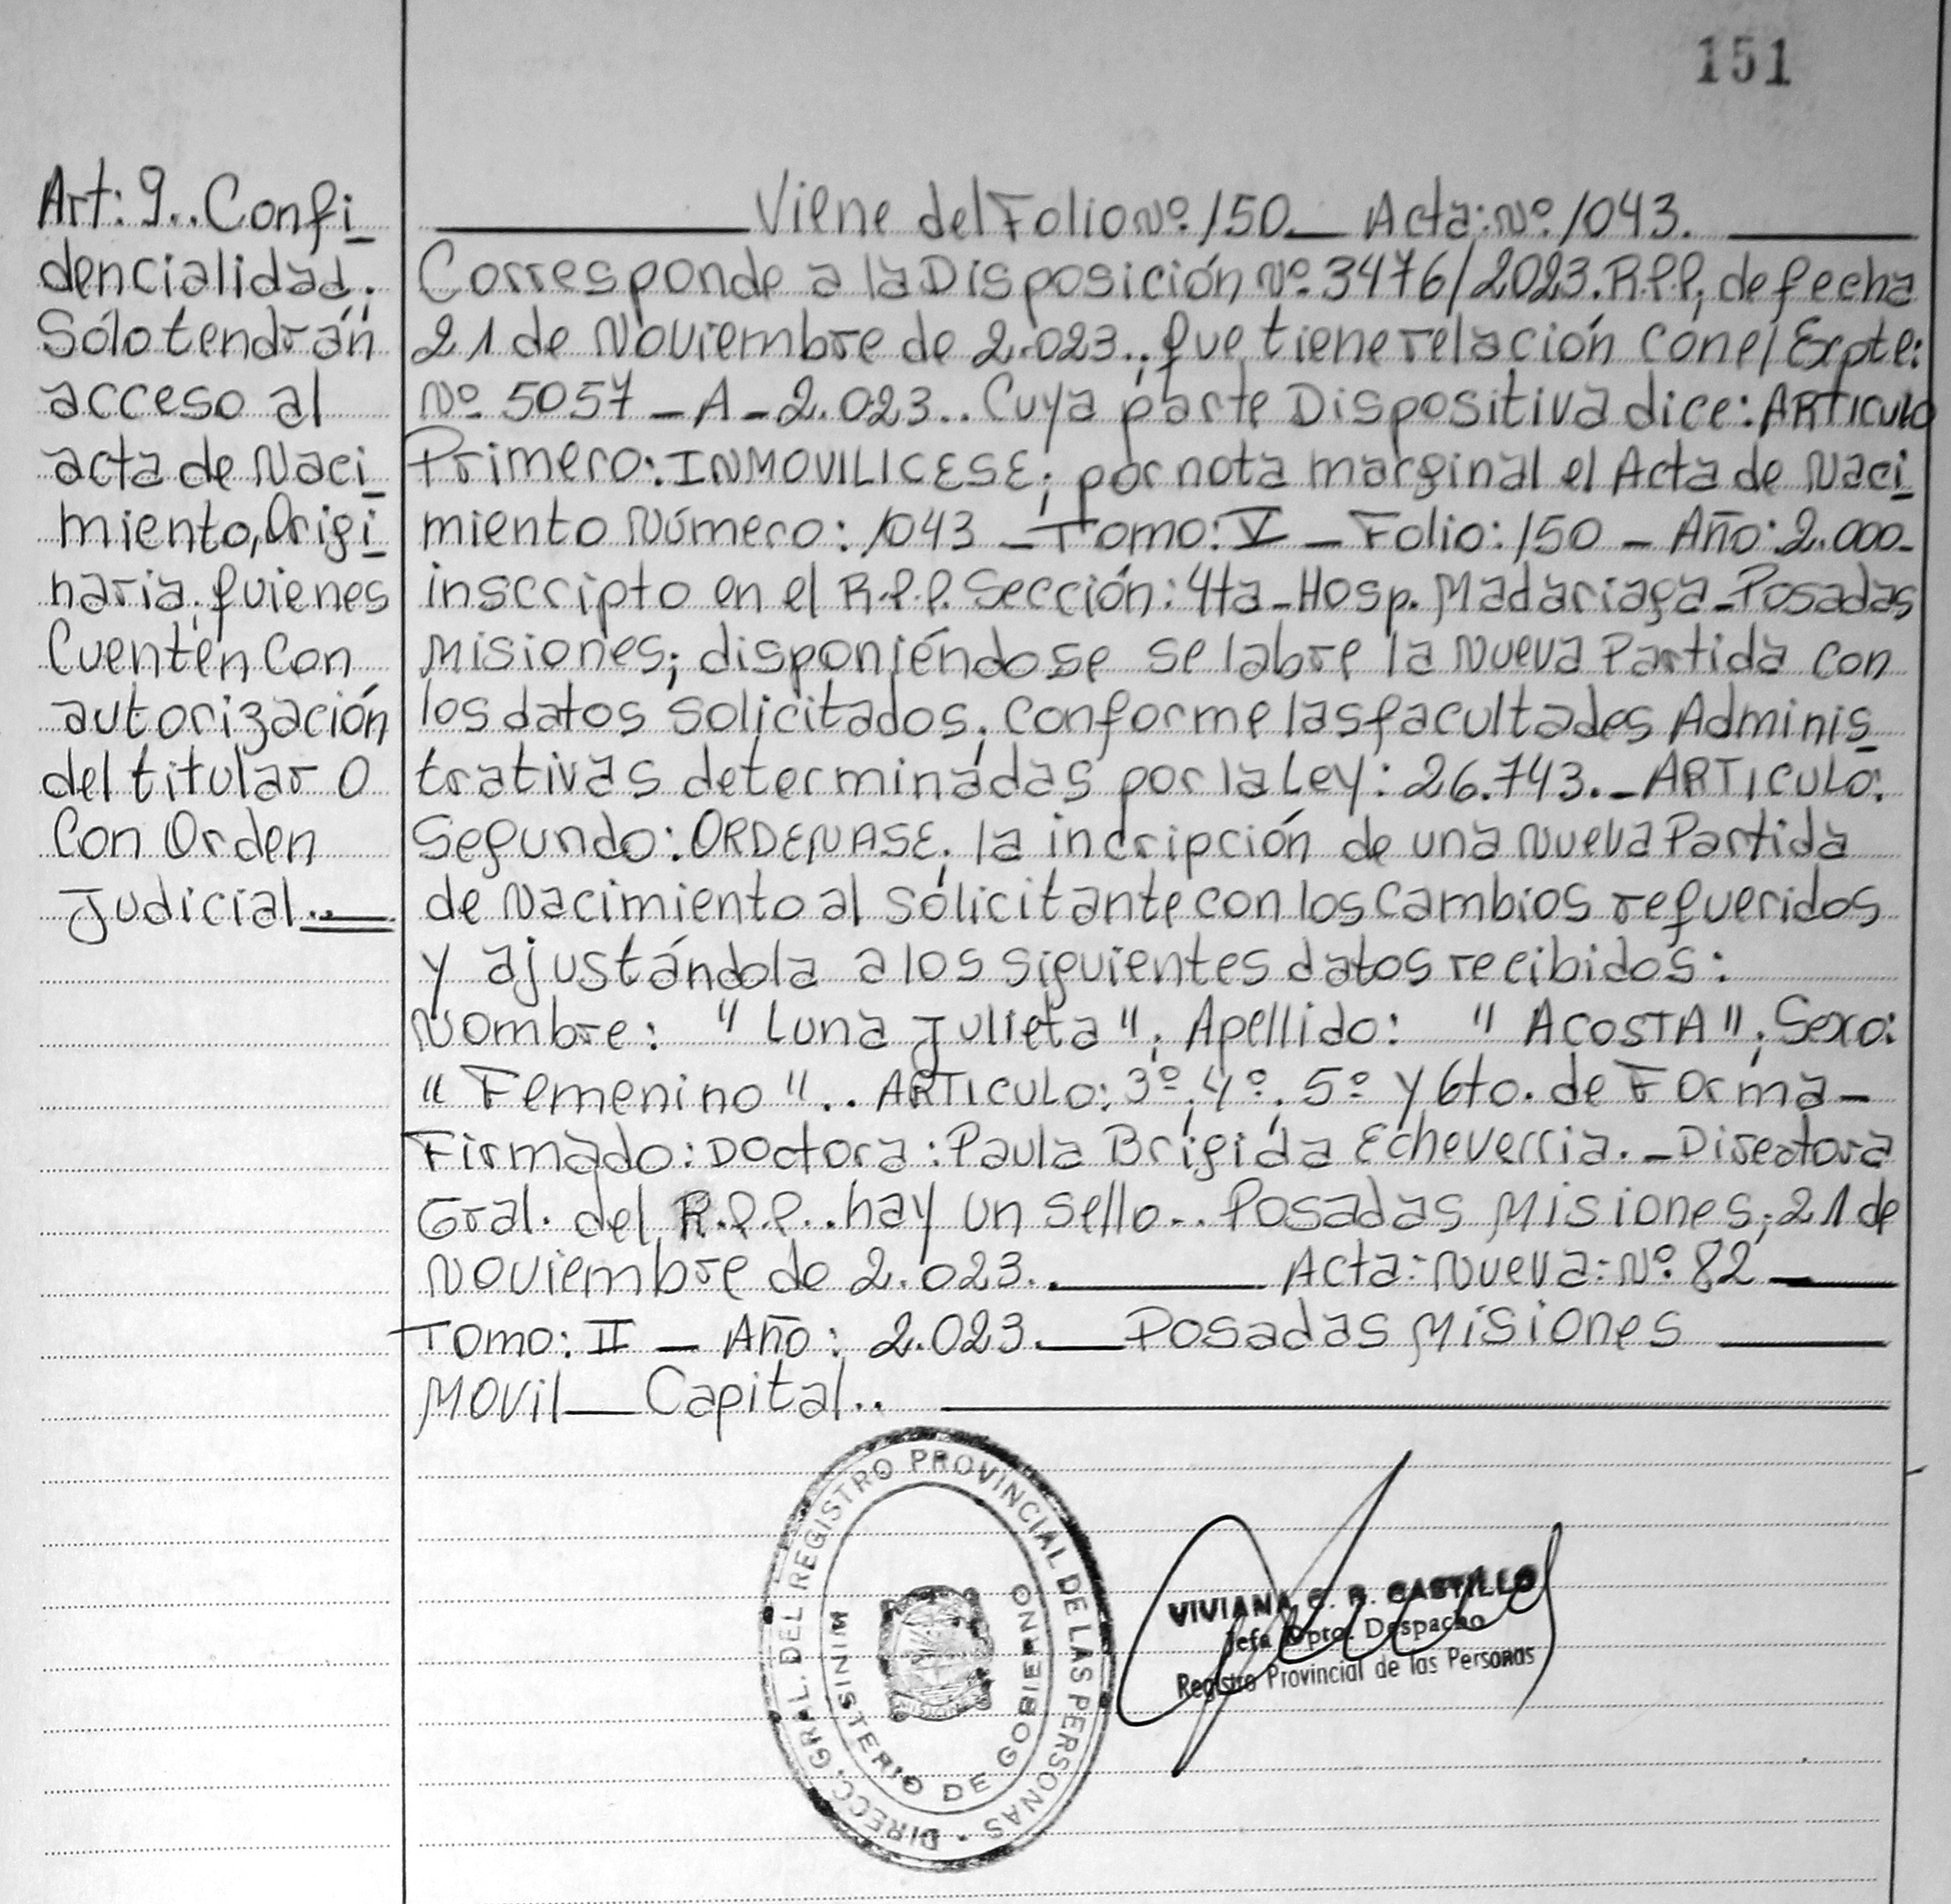 151
Art: 9.. Confi_
dencialidad;
Sólo tendrán
acceso al
acta de Naci_
miento, Origi_
naria; quienes
Cuenten Con
autorización
del titular O
Con Orden
Judicial..
Viene del Folio Nº: 150._ Acta: Nº: 1043.
Corresponde a la Disposición Nº: 3476/2023. R.P.P, de fecha
21 de Noviembre de 2.023.. que, tiene relación con el Expte:
Nº: 5057 - A - 2.023.. Cuya parte Dispositiva dice: ARTICULO
Primero: INMOVILICESE; por nota marginal el Acta de Naci_
miento Número: 1043 - Tomo: V - Folio: 150 - Año: 2.000-
inscripto en el R.P.P. Sección: 4ta - Hosp. Madariaga - Posadas
Misiones; disponiéndose se labre la Nueva Partida con
los datos solicitados; conforme las facultades Adminis_
trativas determinadas por la Ley: 26.743._ ARTICULO:
Segundo: ORDENASE; la incripción de una Nueva Partida
de Nacimiento al Solicitante con los Cambios requeridos
y ajustándola a los siguientes datos recibidos:
Nombre: "Luna Julieta"; Apellido: "ACOSTA"; Sexo:
"Femenino".. ARTICULO: 3º; 4º; 5º y 6to. de Forma-
Firmado: Doctora: Paula Brigida Echeverria._ Directora
Gral. del R.P.P.. hay un sello.. Posadas Misiones; 21 de
Noviembre de 2.023.. Acta: Nueva: Nº: 82
Tomo: II - Año: 2.023. Posadas Misiones
Movil_ Capital..
DIRECC. GRAL. DEL REGISTRO PROVINCIAL DE LAS PERSONAS
MINISTERIO DE GOBIERNO
VIVIANA C. R. CASTILLO
Jefa Dpto. Despacho
Registro Provincial de las Personas